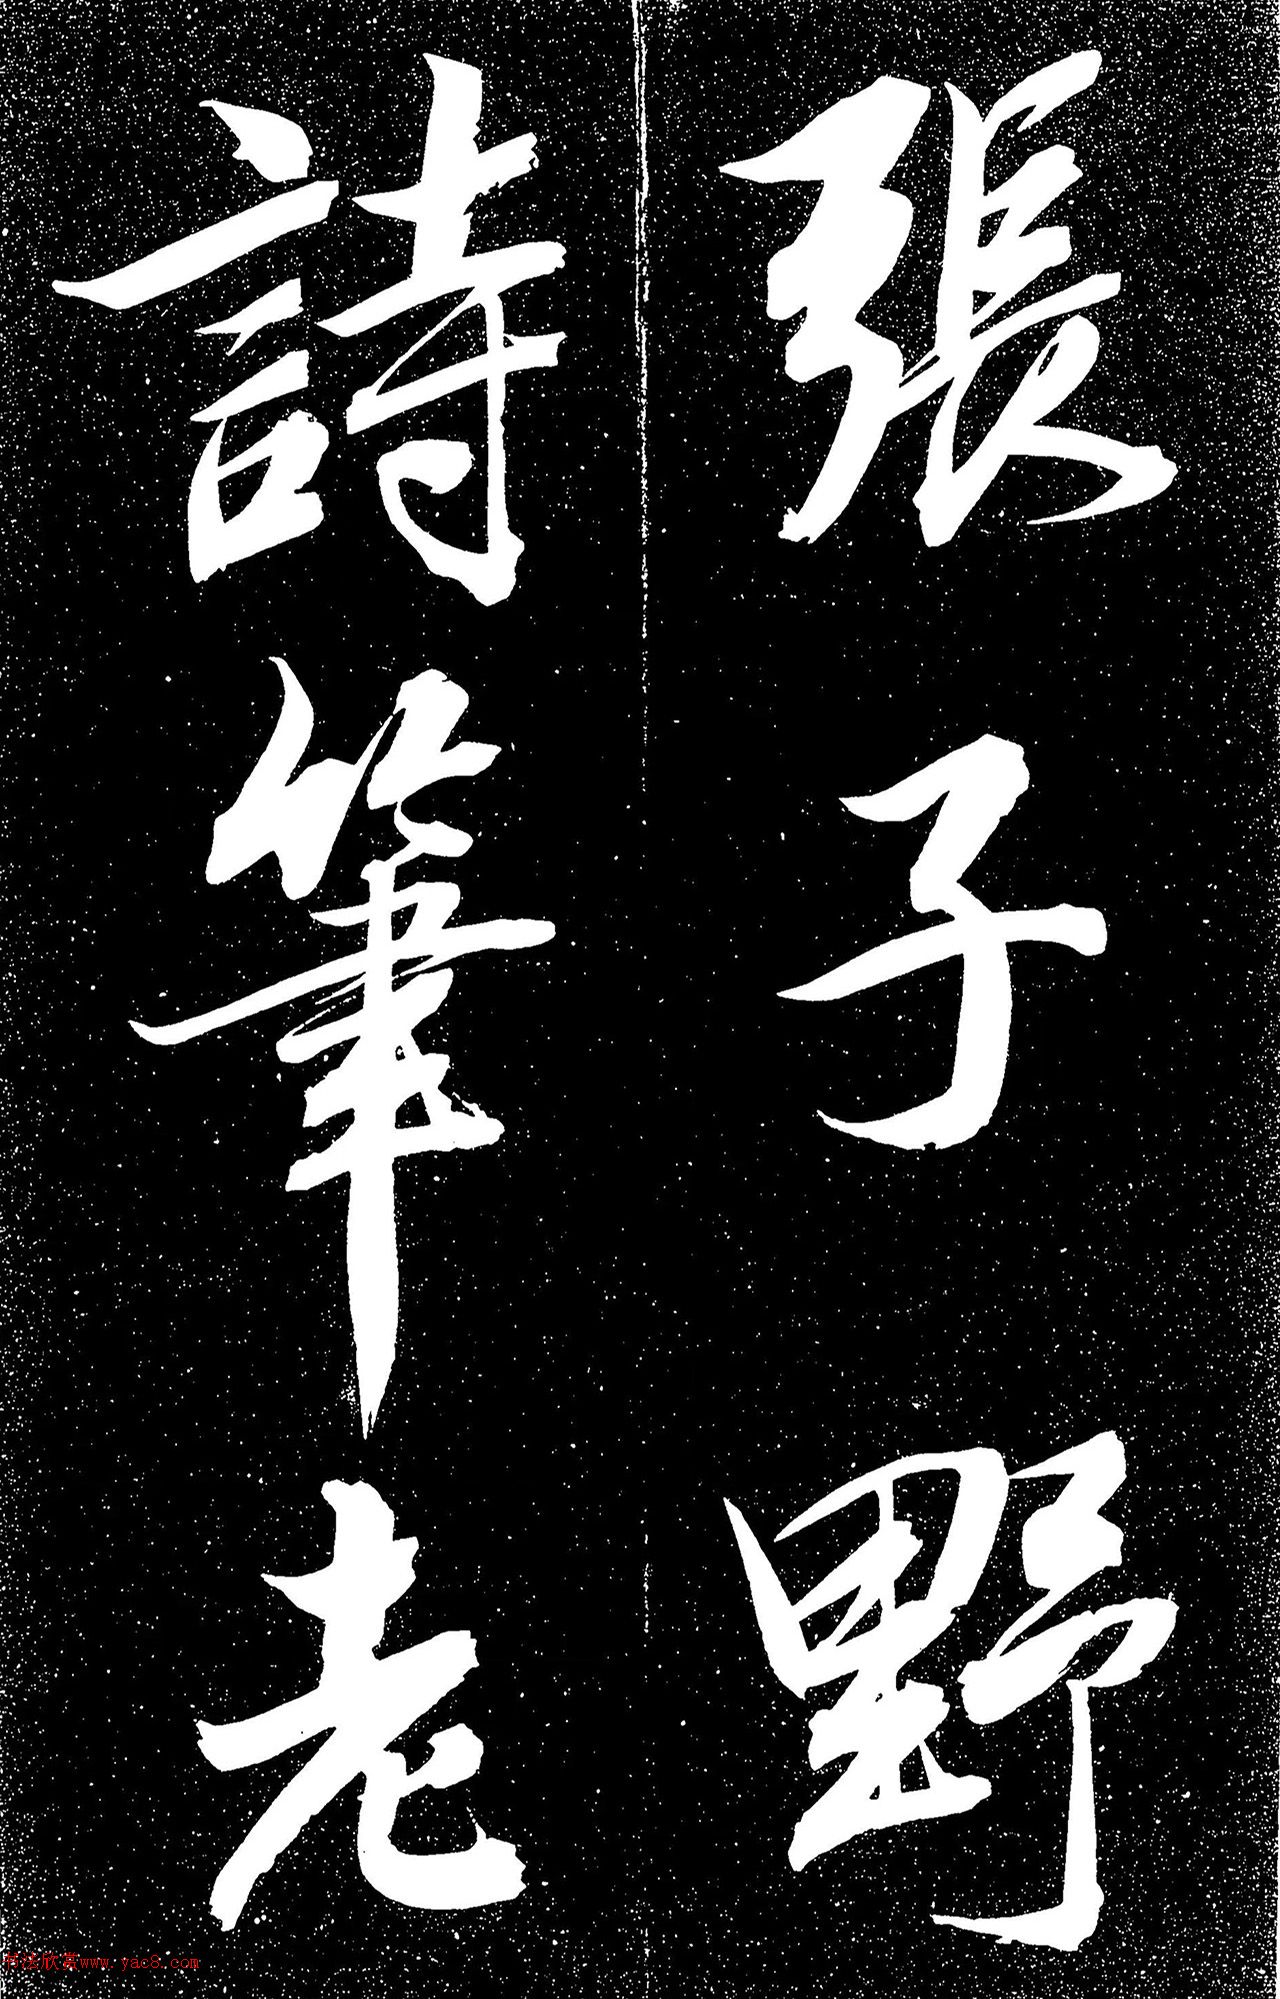 張子野
詩筆老
书法欣赏www.yac8.com